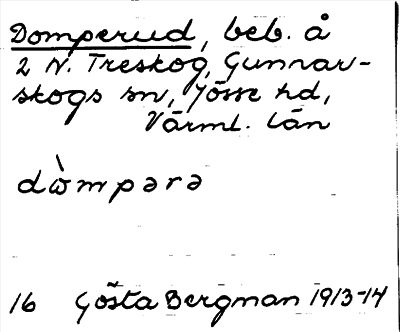 Domperud, beb. å
2 N. Treskog, Gunnar-
skogs sn, Jösse hd,
Värml. län
dὼmpərə
16 Gösta Bergman 1913-14